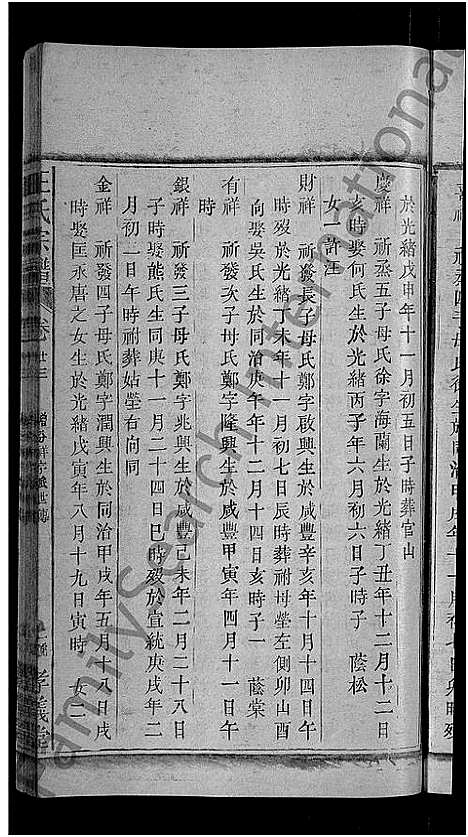 於光緒戊申年十一月初五日子時葬官山
慶祥 祈烝五子母氏徐字海蘭生於光緒丁丑年十二月十二日
亥時娶何氏生於光緒丙子年六月初六日子時子一蔭松
女一許汪
財祥 祈發長子母氏鄭字啟興生於咸豐辛亥年十月十四日午
時歿於光緒丁未年十一月初七日辰時葬祔母塋左側卯山酉
向娶吳氏生於同治庚午年十二月十四日亥時子一 蔭棠
有祥 祈發次子母氏鄭字隆興生於咸豐甲寅年四月十一日午
時
銀祥 祈發三子母氏鄭字兆興生於咸豐己未年二月二十八日
子時娶熊氏生同庚十一月二十四日巳時歿於宣統庚戌年二
月初二日午時祔葬姑塋右向同
金祥 祈發四子母氏鄭字潤興生於同治甲戌年五月十八日戌
時娶匡永唐之女生於光緒戊寅年八月十九日寅時 女二
王氏宗譜 卷廿三
孝義堂
FamilySearch International